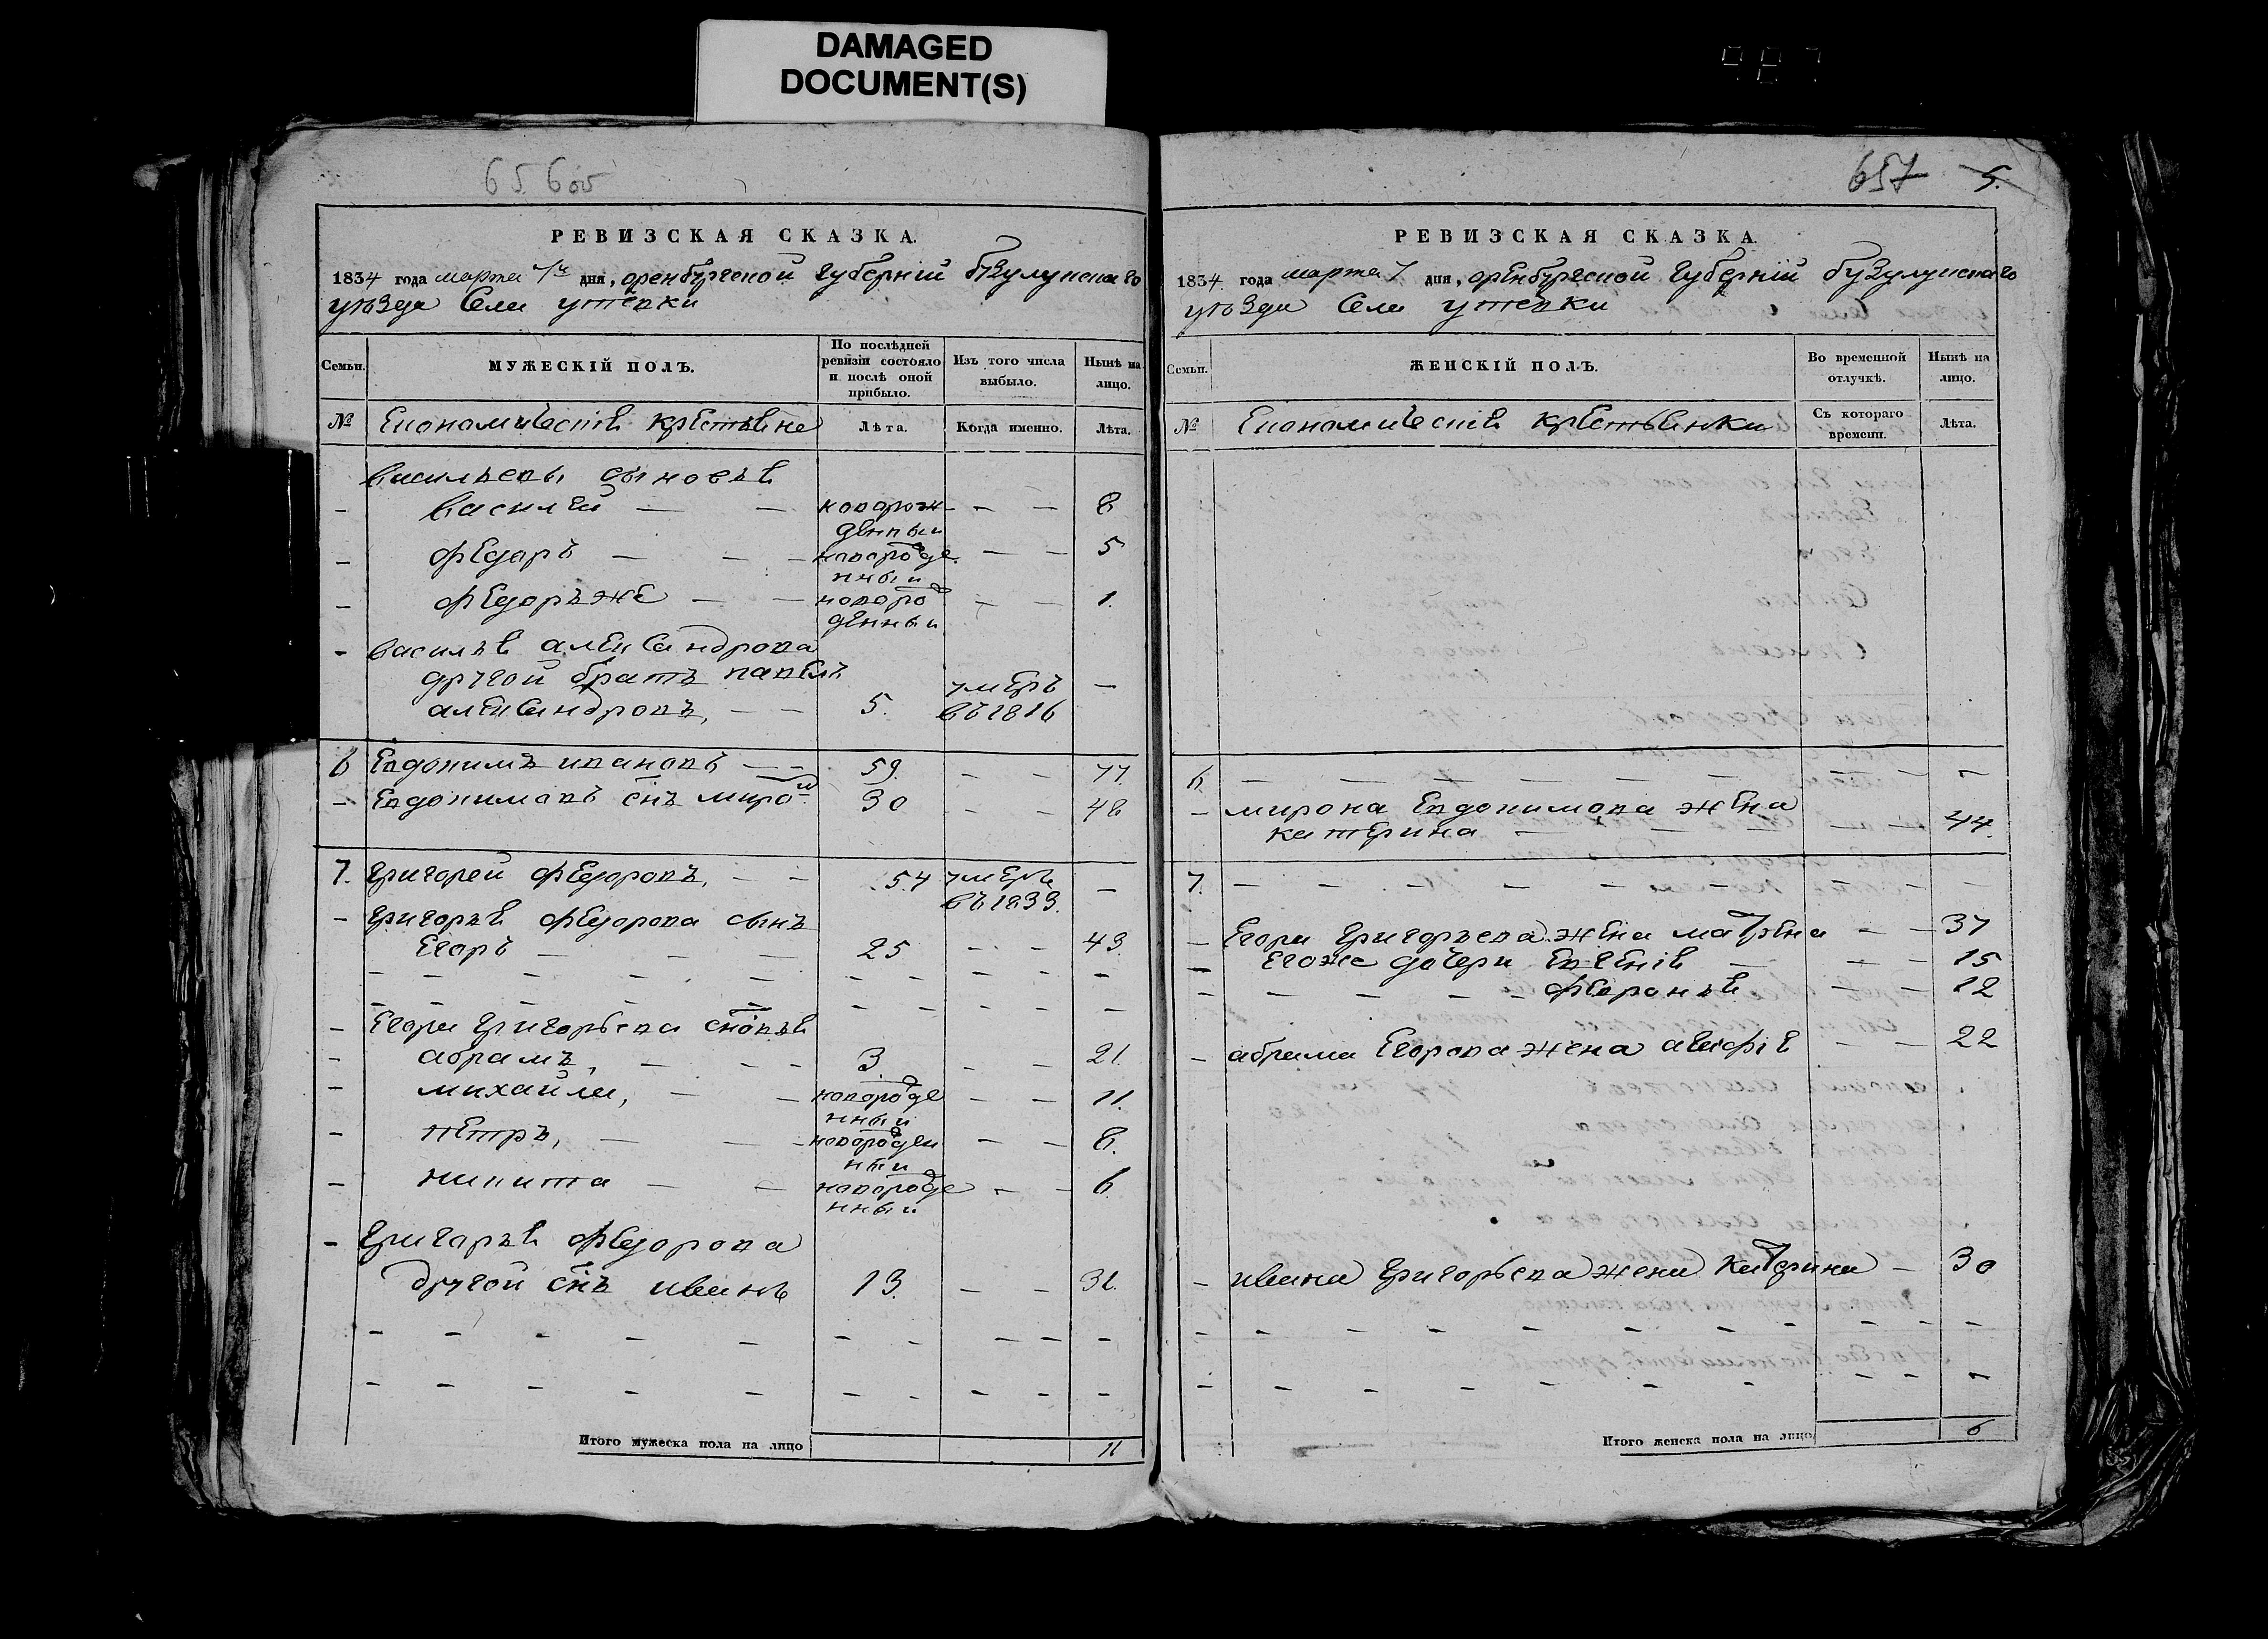 DAMAGED
DOCUMENT(S)
656об
РЕВИЗСКАЯ СКАЗКА.
1834 года марта 7го дня, оренбургской губернiи бузулукскаго
уѣзда села утевки
Семьи.
МУЖЕСКІЙ ПОЛЪ.
По послѣдней ревизіи состояло и послѣ оной прибыло.
Изъ того числа выбыло.
Нынѣ на лицо.
№
Економическiя крестьяне
Лѣта.
Когда именно.
Лѣта.
васильевы сыновья
- василей — — новорож- — — 8
денныи
- федаръ — — новорожде — — 5
нныи
- федоръ же — — новорож — — 1.
денныи
- василья александрова
другой братъ павелъ умеръ —
александровъ, — — 5. въ 1816
6 Евдокимъ ивановъ — — 59. — — 77.
- Евдокимовъ снъ миро н 30 — — 48
7. григорей федоровъ, — — 54 умеръ —
въ 1833.
- григорья федорова сынъ
Егоръ — — — 25 — — 43.
- Егора григорьева сновья
- абрамъ, — — — 3. — — 21.
- михайла, — — новорожде — — 11.
нныи
- петръ, — — новорожден — — 8.
ныи
- никита — — новорожде — — 6.
нныи
- григорья федорова
другой снъ иванъ 13. — — 31.
Итого мужеска пола на лицо 11
657 5.
РЕВИЗСКАЯ СКАЗКА.
1834 года марта 7 дня, оренбургской губернiи бузулукскаго
уѣзда села утевки
Семьи.
ЖЕНСКІЙ ПОЛЪ.
Во временной отлучкѣ.
Нынѣ на лицо.
№
Економическiя крестьянки
Съ котораго времени.
Лѣта.
6. — — — — — — — — —
- мирона Евдокимова жена
катерина — — — — — 44.
7. — — — — — — — — —
- Егора григорьева жена матрена — — 37
- Егоже дочери Евгенiя — — — 15
- — — — — февронья — — 12
- абрама Егорова жена агафiя — — 22
- ивана григорьева жена катерина — 30
Итого женска пола на лицо 6